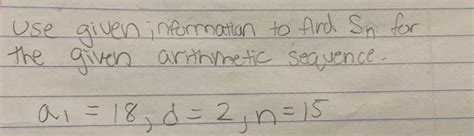 Use given information to find Sn for
the given arithmetic sequence.
a₁ = 18, d = 2, n = 15